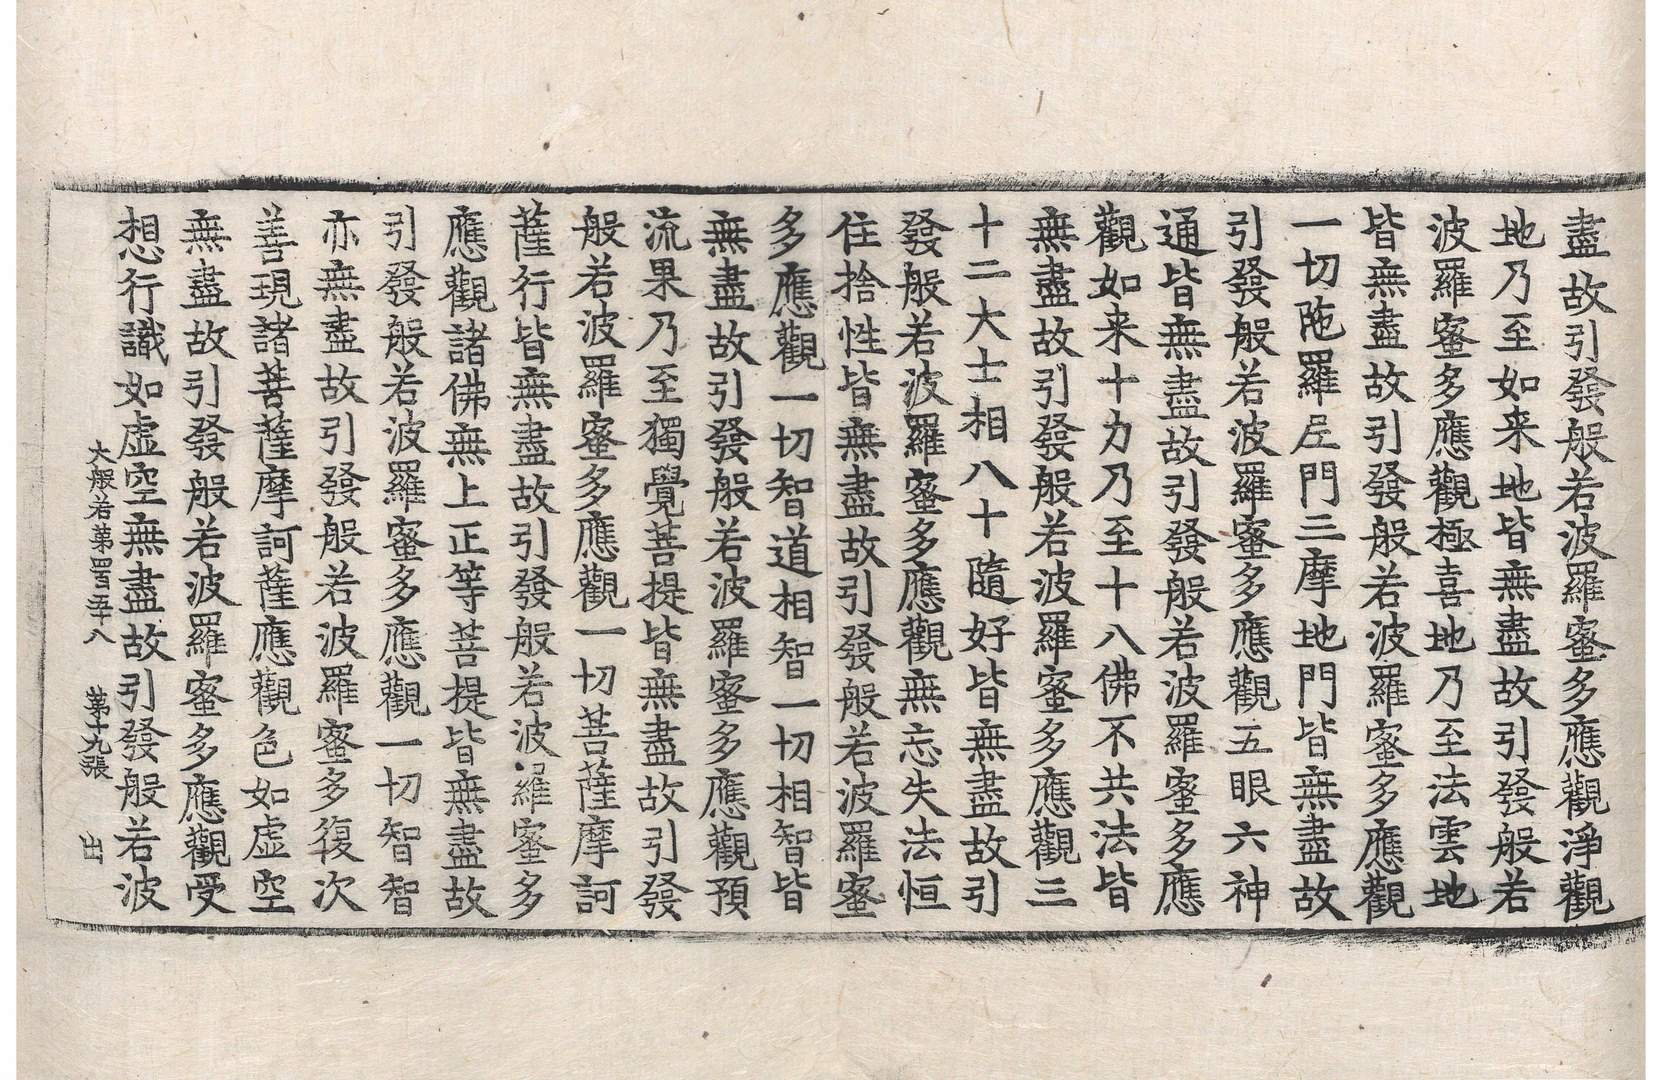 盡故引發般若波羅蜜多應觀淨觀
地乃至如来地皆無盡故引發般若
波羅蜜多應觀極喜地乃至法雲地
皆無盡故引發般若波羅蜜多應觀
一切陁羅尼門三摩地門皆無盡故
引發般若波羅蜜多應觀五眼六神
通皆無盡故引發般若波羅蜜多應
觀如来十力乃至十八佛不共法皆
無盡故引發般若波羅蜜多應觀三
十二大士相八十隨好皆無盡故引
發般若波羅蜜多應觀無忘失法恒
住捨性皆無盡故引發般若波羅蜜
多應觀一切智道相智一切相智皆
無盡故引發般若波羅蜜多應觀預
流果乃至獨覺菩提皆無盡故引發
般若波羅蜜多應觀一切菩薩摩訶
薩行皆無盡故引發般若波羅蜜多
應觀諸佛無上正等菩提皆無盡故
引發般若波羅蜜多應觀一切智智
亦無盡故引發般若波羅蜜多復次
善現諸菩薩摩訶薩應觀色如虛空
無盡故引發般若波羅蜜多應觀受
想行識如虛空無盡故引發般若波
大般若第四百五十八 第十九張 出